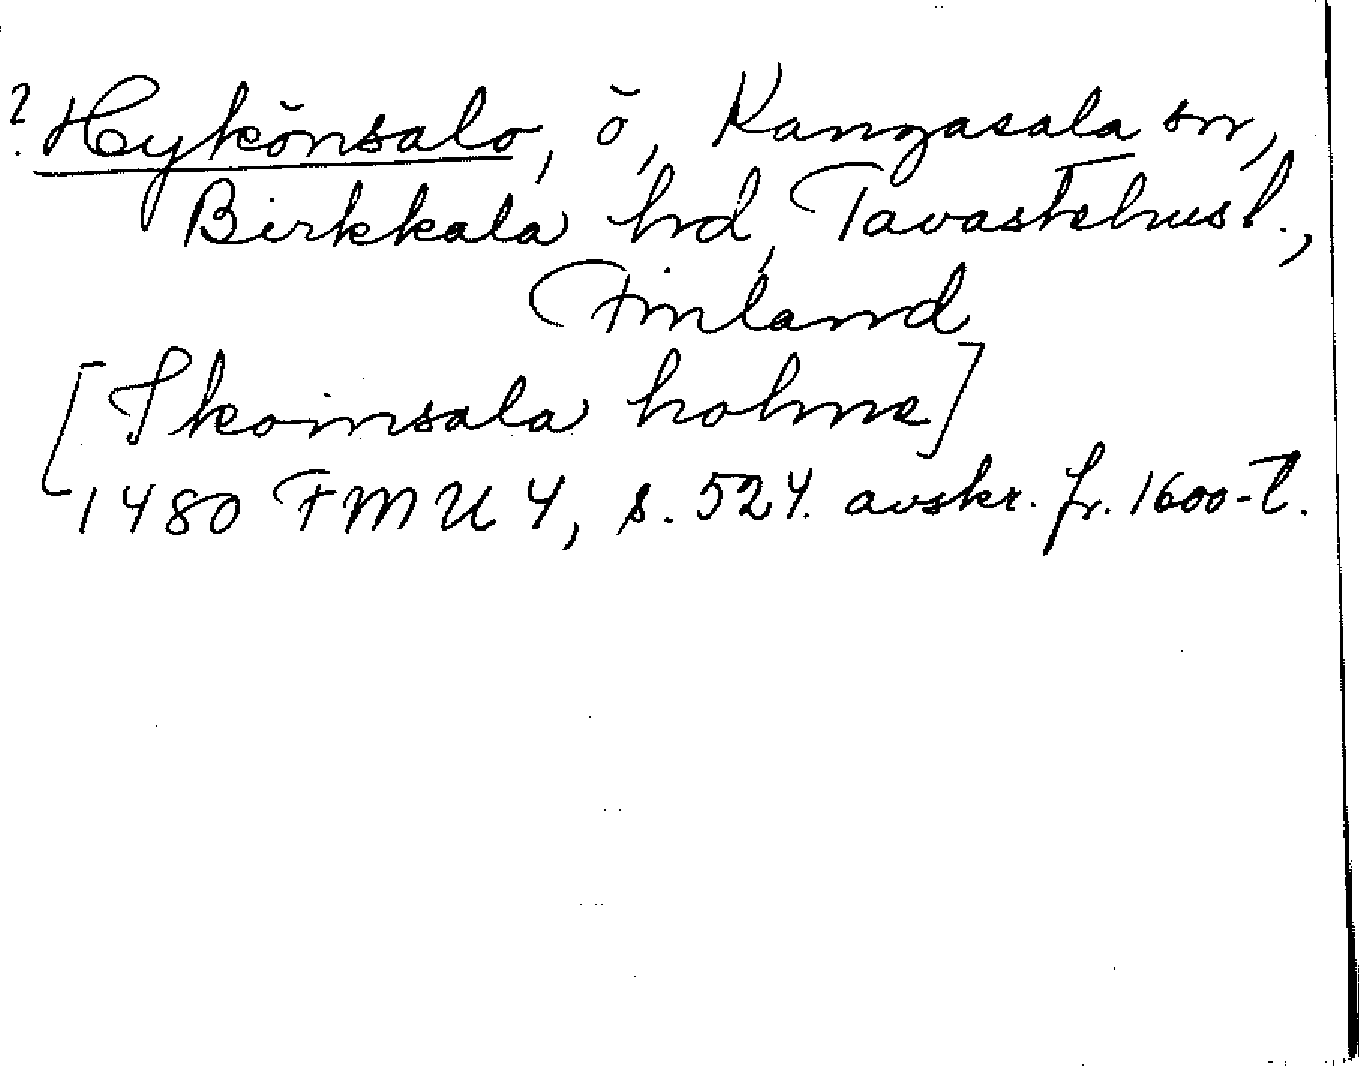 ? Hykönsalo, ö, Kangasala sn,
Birkkala hd, Tavastehus l.,
Finland
[Skoinsala holme]
1480 FMU 4, s. 524. avskr. fr. 1600-t.